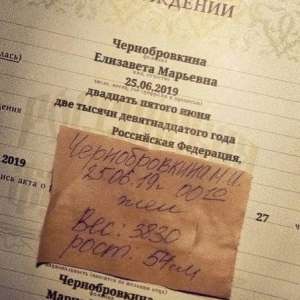 ЖДЕНИИ
Чернобровкина
фамилия
Елизавета Марьевна
25.06.2019
двадцать пятого июня
две тысячи девятнадцатого года
Российская Федерация,
Чернобровкина Н.И.
25.06.19г. 00 10
жен
Вес: 3830
рост: 54см
2019
27
Чернобровкина
Марьевна